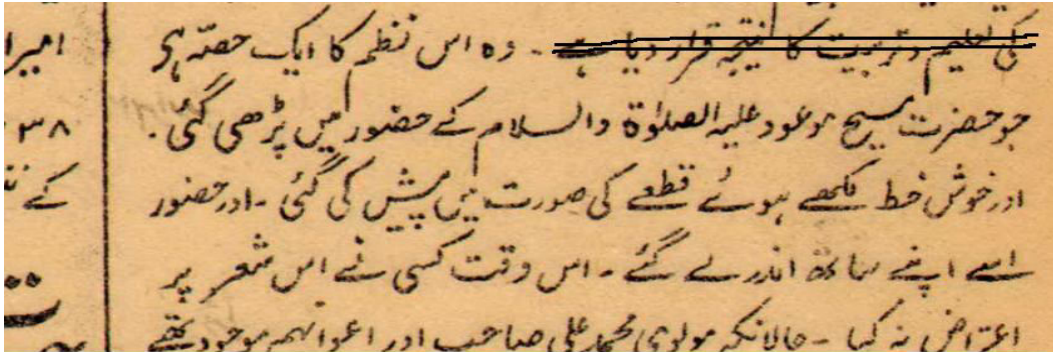 کی تعلیم و تربیت کا نتیجہ قرار دیا ہے - وہ اس نظم کا ایک حصہ ہے
جو حضرت مسیح موعود علیہ الصلوٰۃ والسلام کے حضور میں پڑھی گئی.
اور خوش خط لکھے ہوئے قطعے کی صورت میں پیش کی گئی - اور حضور
اسے اپنے ساتھ اندر لے گئے - اس وقت کسی نے اس شعر پر
اعتراض نہ کیا - حالانکہ مولوی محمد علی صاحب اور اعوانہم موجود تھے
امیرا
۳۸
کے